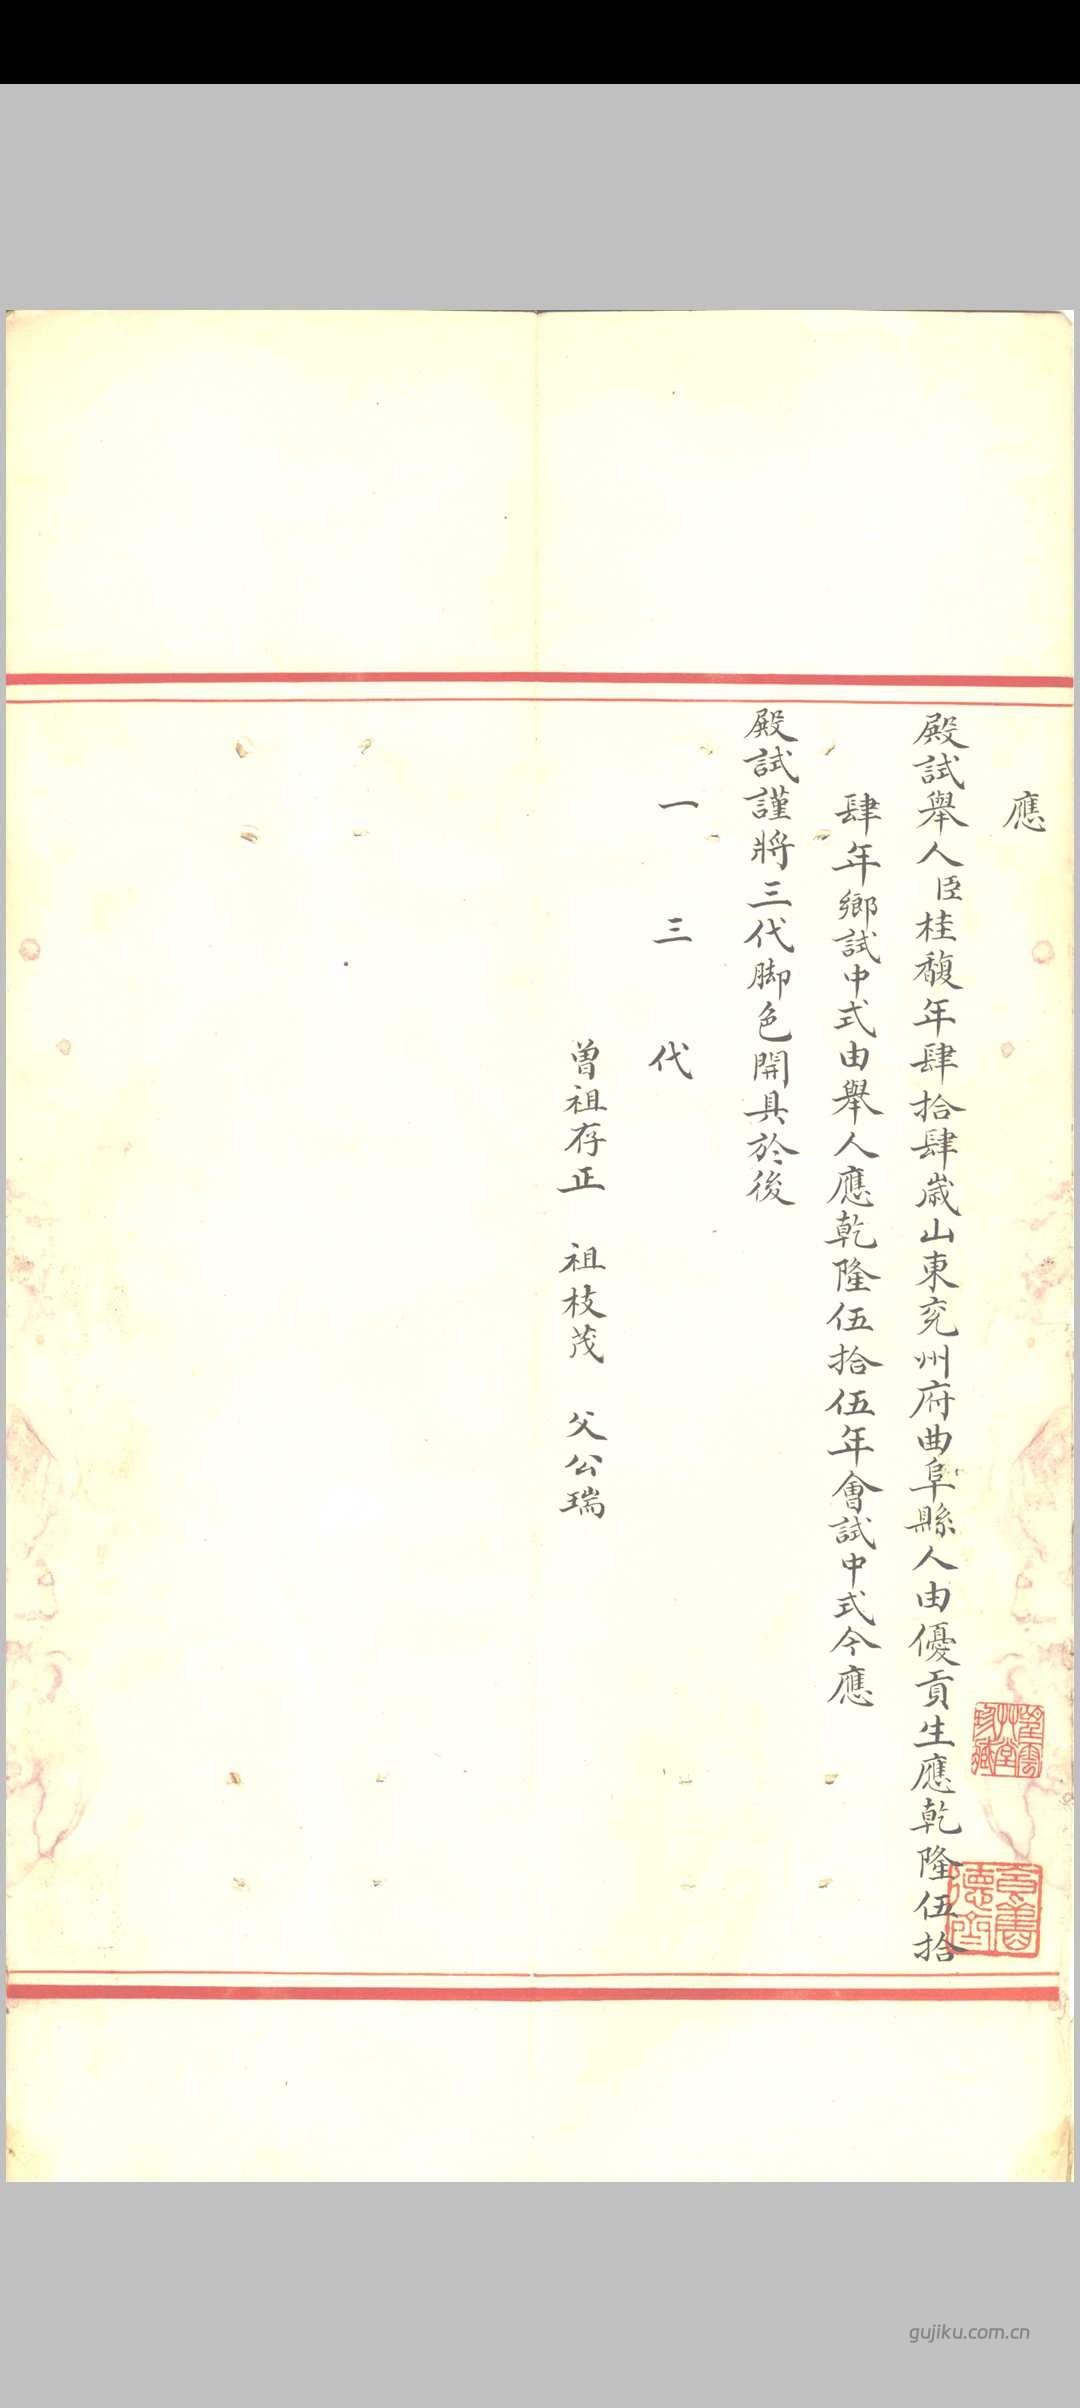 應
殿試舉人臣桂馥年肆拾肆歲山東兖州府曲阜縣人由優貢生應乾隆伍拾
肆年鄉試中式由舉人應乾隆伍拾伍年會試中式今應
殿試謹將三代脚色開具於後
一三代
曾祖存正 祖枝茂 父公瑞
gujiku.com.cn